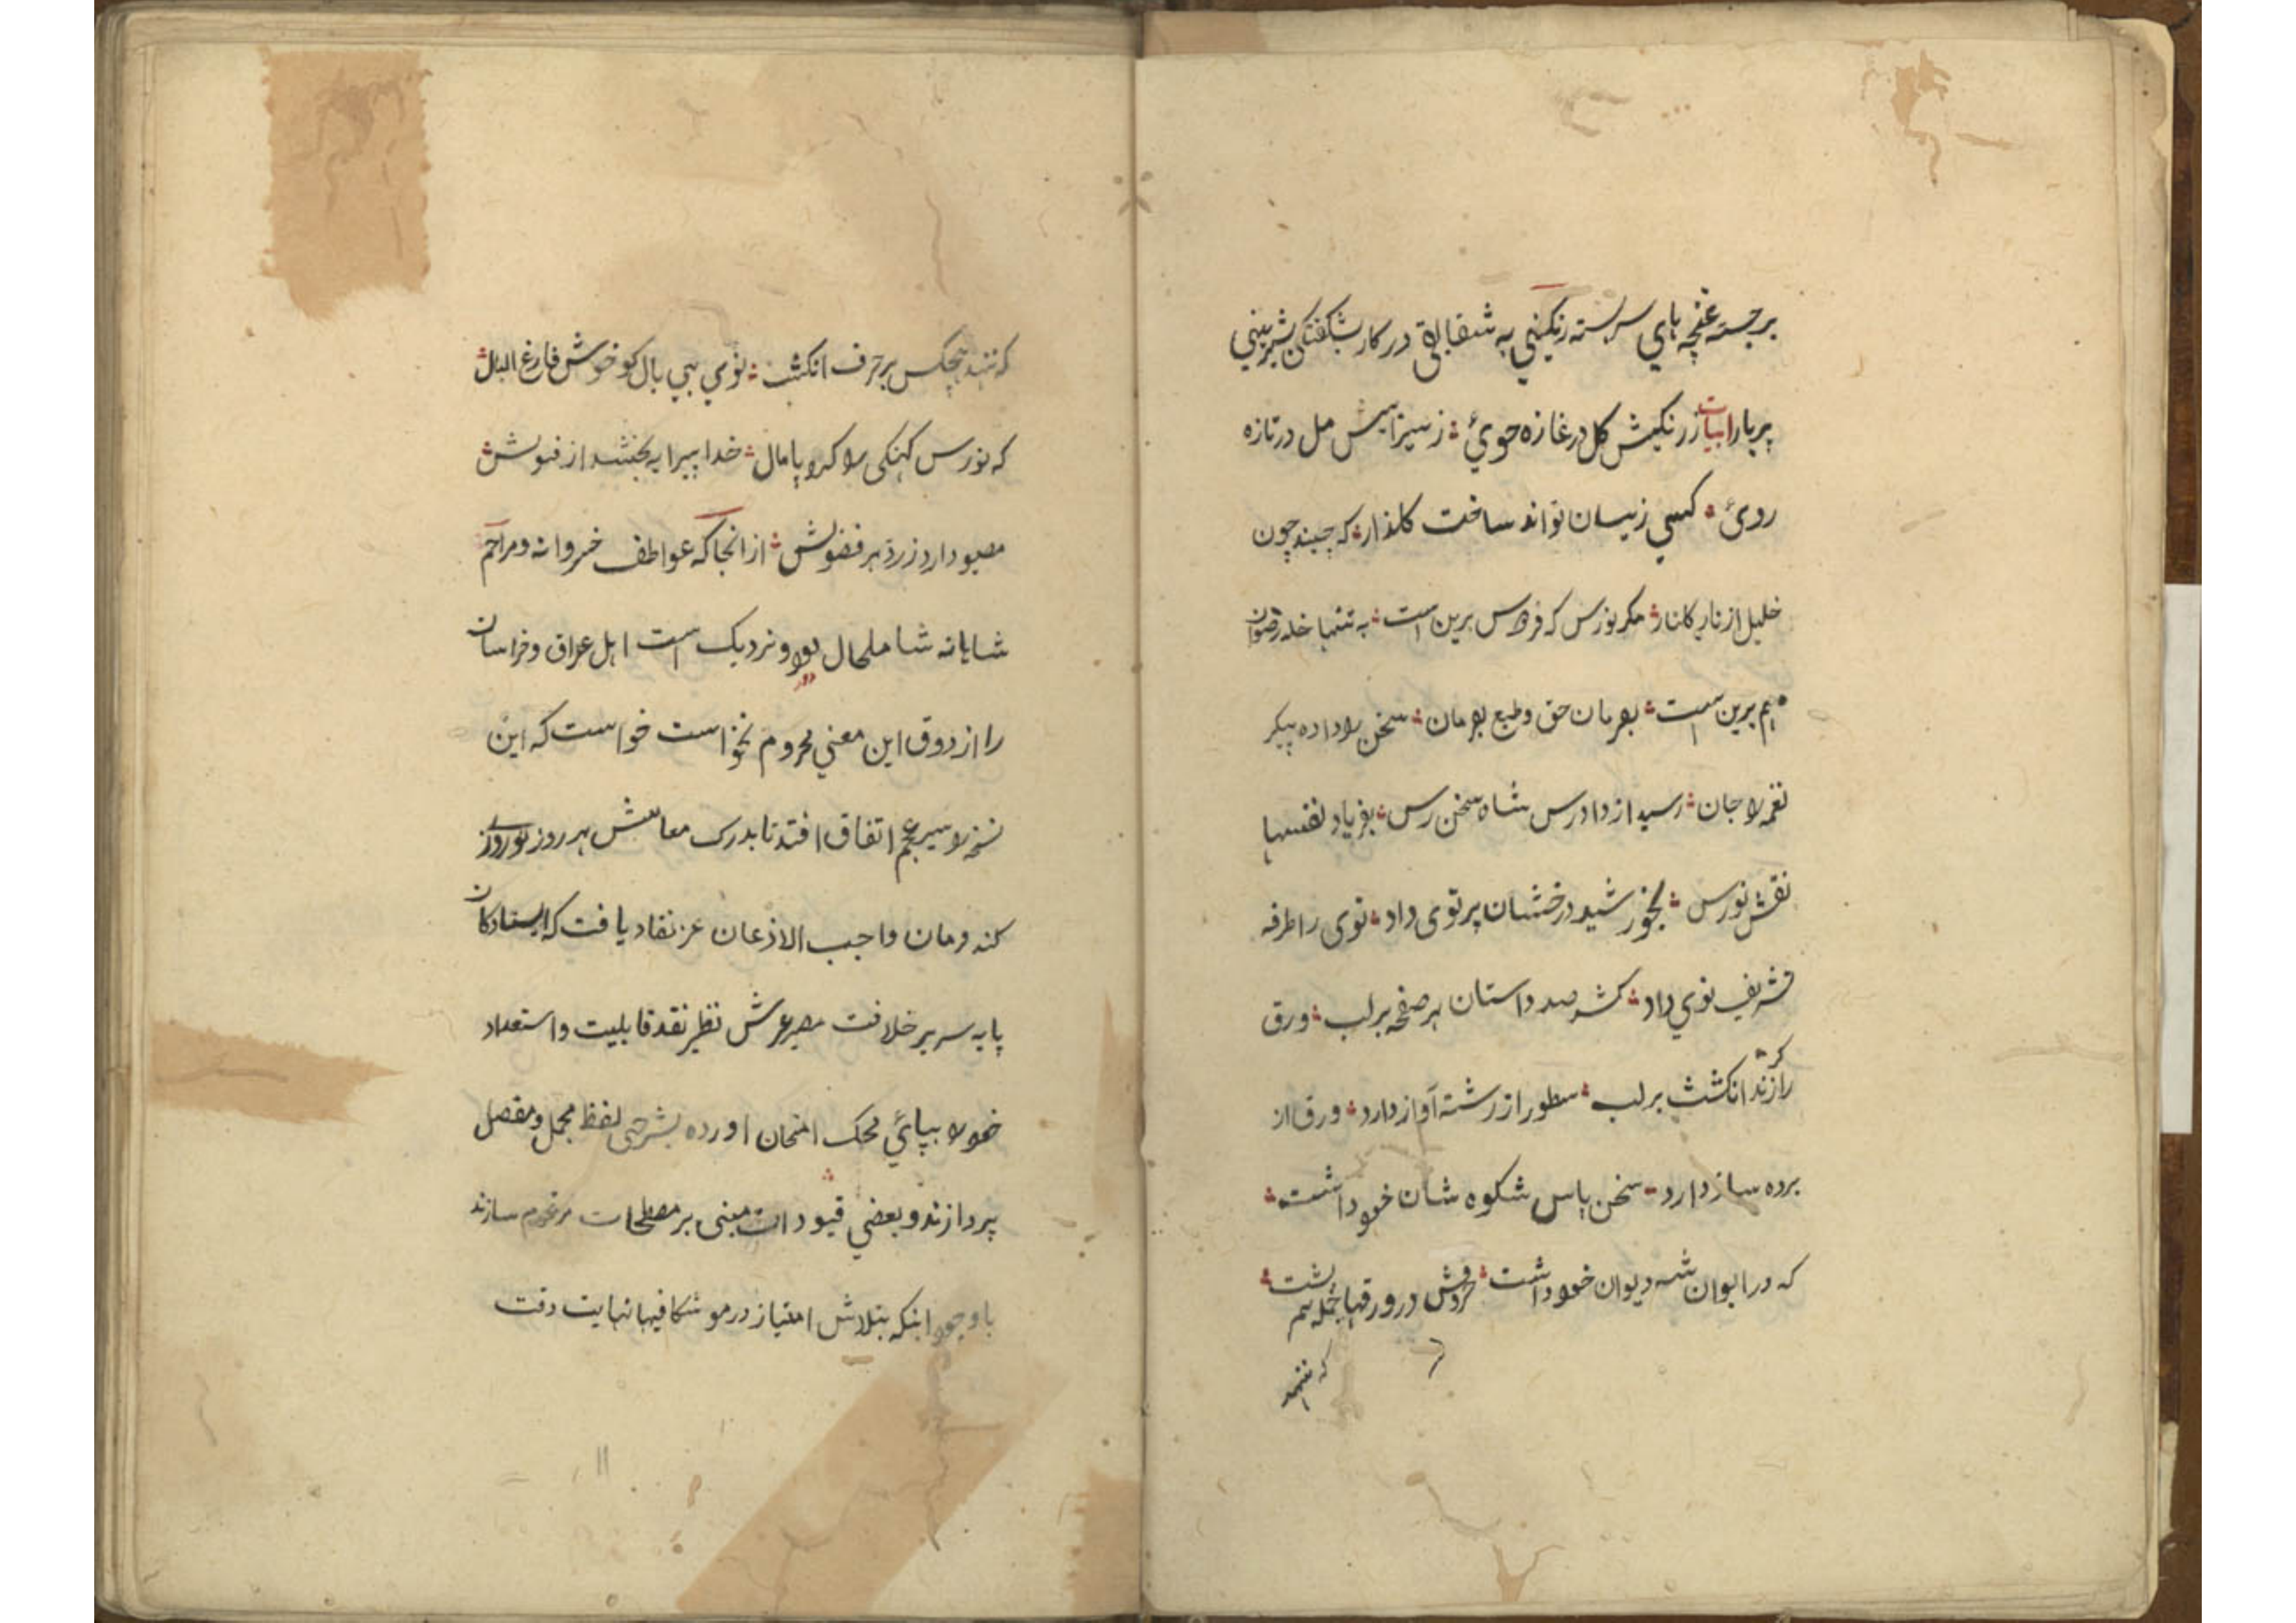 برجسته غنچه هاي سربسته رنگيني به شفتالوي در کار شگفتگي شيريني
پر بار ابيات ز رنگينش گل در غازه جوئ ز سيرابيش مل در تازه
روئ کسي زينسان تواند ساخت گلزار که چيند چون
خليل از نار گلنار مگر نورس که فردوس برين است به تنها خلد رضوان
هم برين است بفرمان حق و طبع بفرمان سخن را داده پيکر
نغمه را جان رسيد از دادرس شاه سخن رس بفرياد نفسها
نقش نورس بخورشيد درخشان پرتوى داد نوى را طرفه
تشريف نوي داد کشد صد داستان هر صفحه بر لب ورق
گر را زند انگشت بر لب سطور از رشته آواز دارد ورق از
پرده ساز دارد سخن پاس شکوه شان خود داشت
که در ايوان شه ديوان خود داشت در ورقها جمله هم پشت
که ننهد
که ننهد هيچکس بر حرف انگشت نوي بي بال کو خوش فارغ البال
که نورس کهنگى را کرد پامال خدا پيرايه بخشد از قبولش
مصون دارد ز رد هر فضولش از انجا که عواطف خسروانه و مراحم
شاهانه شامل حال دور و نزديک است اهل عراق و خراسان
را از ذوق اين معني محروم نخواست خواست که اين
نسخه را سير عجم اتفاق افتد تا بدرک معانيش هر روز نوروزے
کنند فرمان واجب الاذعان عز نفاد يافت که ايستادگان
پايه سرير خلافت مصير عرش نظير نقد قابليت و استعداد
خود را بپائي محک امتحان اورده بشرح لفظ مجمل و مفصل
پردازند و بعضي قيودات مبنى بر مصطلحات مرقوم سازند
با وجود اينکه بتلاش امتياز در موشگافيها نهايت دقت